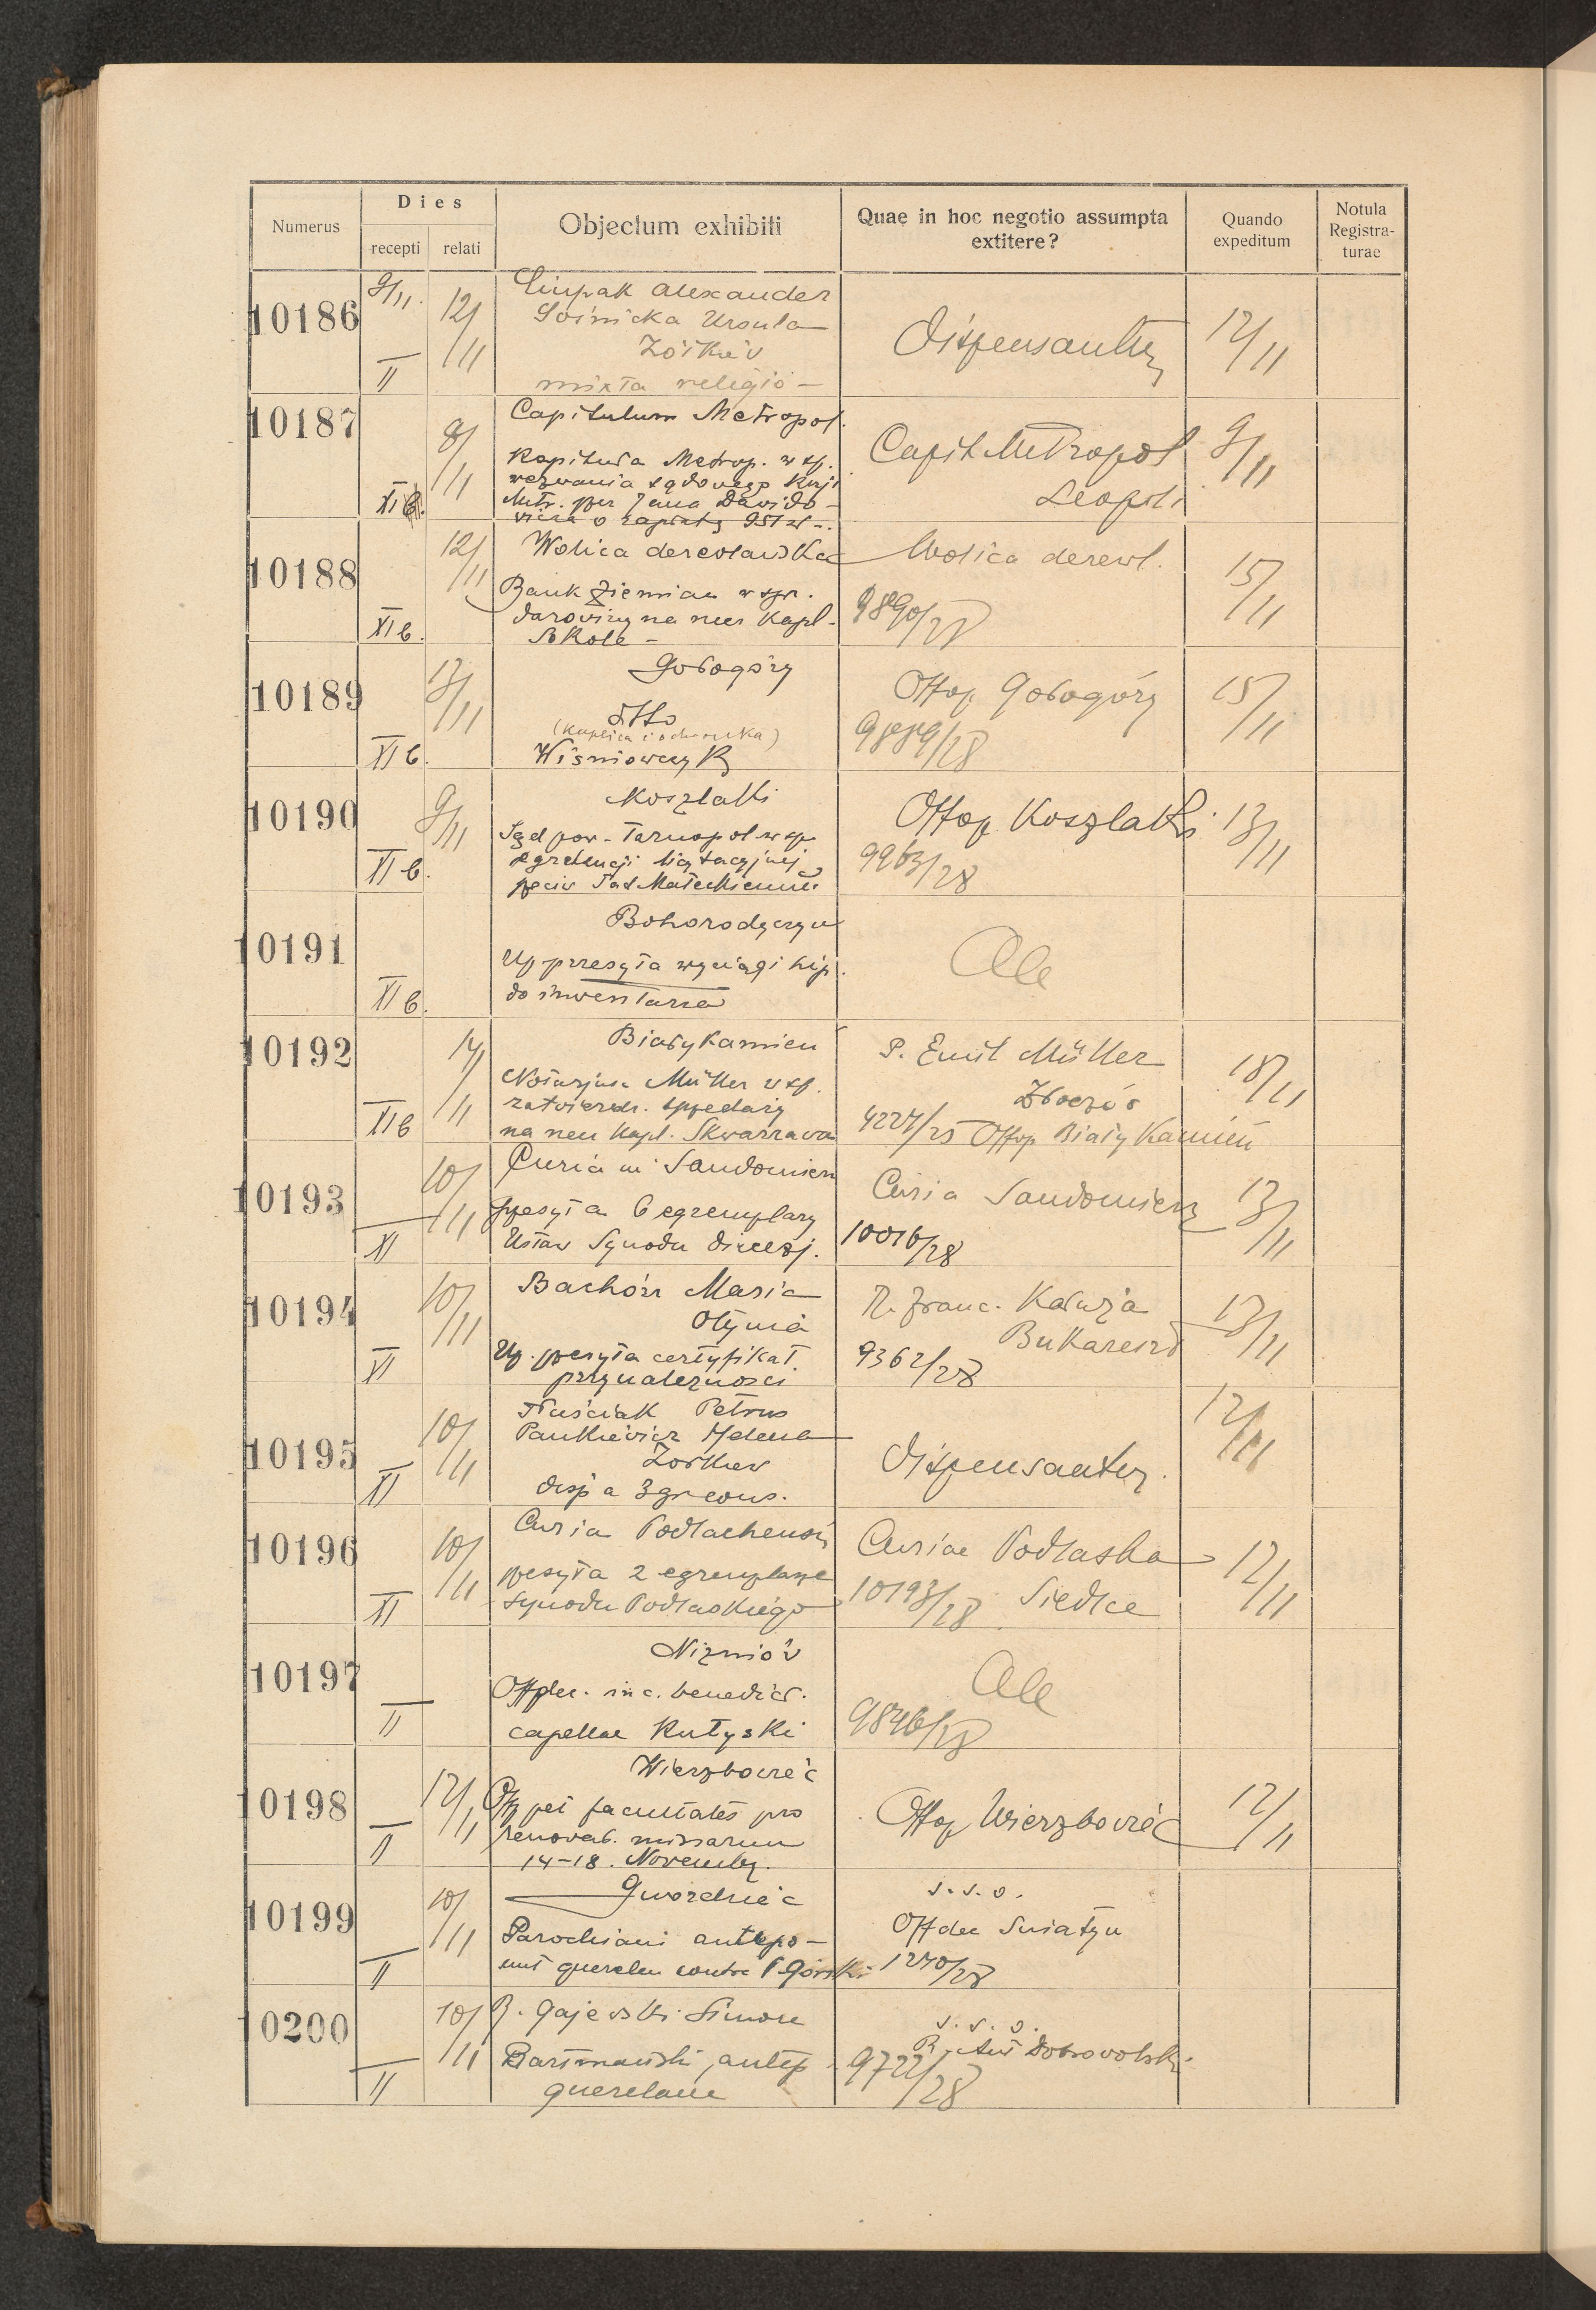 Numerus
Dies
recepti relati
Objectum exhibiti
Quae in hoc negotio assumpta
extitere?
Quando
expeditum
Notula
Registra-
turae
10186 9/11. 12/11 II
Alexander
Ursula
Żółkiew
mixta religio —
Dispensantur 12/11
10187 8/11 XI b.
Capitulum Metropol.
Kapituła Metrop. w sp.
wezwania sądowego Kurji
Metr. per Jana Dawido-
wicza o zapłatę 951 zł -.
Capit. Metropol
Leopoli
9/11
10188 12/11 XI b.
Wolica derewlańska
Bank Ziemian w spr.
darowizny na rzecz Kapl.
Sokole —
Wolica derewl.
9890/28
15/11
10189 13/11 XI b.
Gołogóry
ditto
(Kaplica i ochronka)
Wiśniowczyk
Offop Gołogóry
9889/28
15/11
10190 9/11 XI b.
Koszlaki
Sąd pow. Tarnopol w sp.
egzekucji licytacyjnej
pciw Tad Małeckiemu
Offop Koszlaki
9963/28
13/11
10191 XI b.
Bohorodczyn
Up przesyła wyciągi hip.
do inwentarza
Ale
10192 14/11 XI b
Biały Kamień
Notarjusz Müller w sp.
zatwierdz. sprzedaży
na rzecz Kapl. Skwarzawa
P. Emil Müller
Złoczów
4227/25 Offop Biały Kamień
18/11
10193 10/11 XI
Curia in Sandomierz
przesyła 6 egzemplarzy
Ustaw Synodu diecezj.
Curia Sandomierz
10016/28
13/11
10194 10/11 XI
Bachórz Maria
Otynia
Up. przesyła certyfikat
przynależności
R. Franc. Kałuża
Bukareszt
9362/28
13/11
10195 10/11 XI
Petrus
Pankiewicz Helena
Żółkiew
disp a 3 gr cons.
Dispensantur.
12/11
10196 10/11 XI
Curia Podlachensis
przesyła 2 egzemplarze
Synodu Podlaskiego
Curiae Podlaska
10193/28 Siedlce
12/11
10197 II
Niżniów
Offdec. in c. benedict.
capellae Kutyski
Ale
9846/28
10198 12/11 II
Wierzbowiec
Offop pet facultates pro
renovat. missarum
14-18. Novembr.
Offop Wierzbowiec
12/11
10199 10/11 II
Gwoździec
Parochiani antepo-
nunt querelam contra P Górski
s. s. o.
Offdec Sniatyn
1270/28
10200 10/11 II
R. Gajewski Simon
antep
querelam
s. s. o.
R. Ant Dobrowolski
9722/28